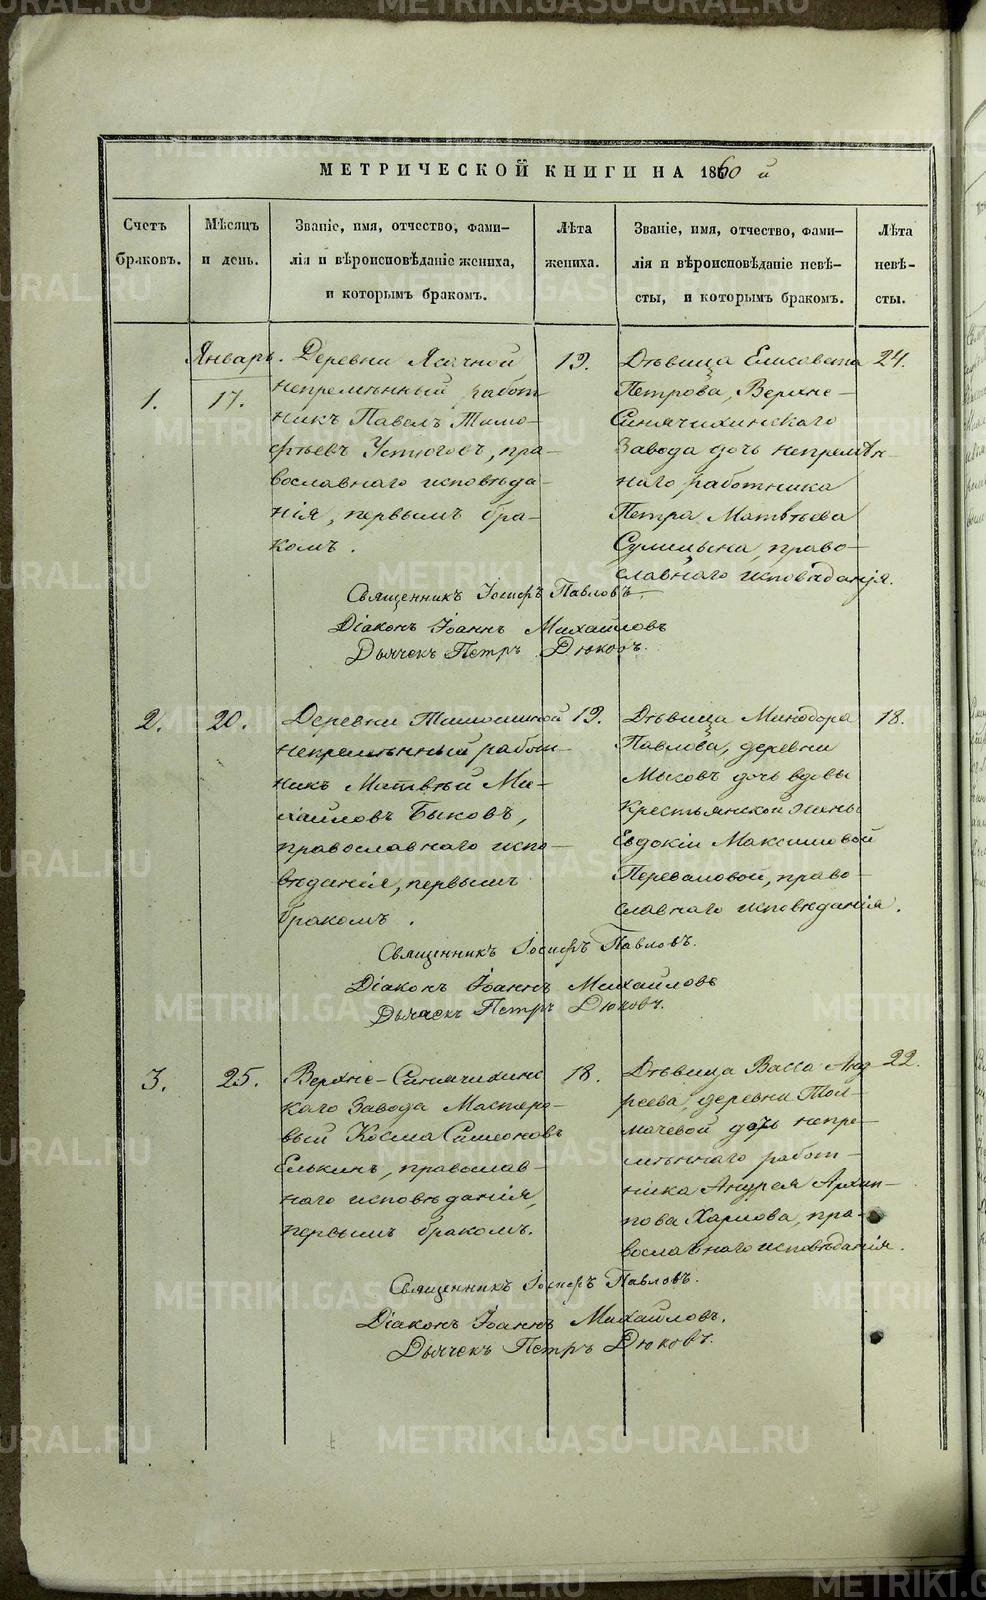 МЕТРИЧЕСКОЙ КНИГИ НА 1860 й
Счетъ браковъ.
Мѣсяцъ и день.
Званіе, имя, отчество, фами-
лія и вѣроисповѣданіе жениха,
и которымъ бракомъ.
Лѣта жениха.
Званіе, имя, отчество, фами-
лія и вѣроисповѣданіе невѣ-
сты, и которымъ бракомъ.
Лѣта невѣ-
сты.
1.
Январь.
17.
Деревни Ясачной
непремѣнный работ-
никъ Павелъ Тимо-
фѣевъ Устюговъ, пра-
вославнаго исповѣда-
нія, первымъ бра-
комъ.
19.
Дѣвица Елисавета
Петрова, Верхне-
Синячихинскаго
Завода дочь непремѣн-
наго работника
Петра Матвѣева
право-
славнаго исповѣданія.
24.
Священникъ Іосифъ Павловъ
Діаконъ Іоаннъ Михайловъ
Дьячекъ Петръ Дюковъ.
2.
20.
Деревни
непремѣнный работ-
никъ Матвѣй Ми-
хайловъ Быковъ,
православнаго испо-
вѣданія, первымъ
бракомъ.
19.
Дѣвица Минодора
Павлова, деревни
Мысовъ дочь вдовы
крестьянской жены
Евдокіи Максимовой
Переваловой, право-
славнаго исповѣданія.
18.
Священникъ Іосифъ Павловъ.
Діаконъ Іоаннъ Михайловъ
Дьячекъ Петръ Дюковъ.
3.
25.
Верхне-Синячихинс
каго Завода Мастеро-
вый Косма Симеоновъ
Елькинъ, православ-
наго исповѣданія,
первымъ бракомъ.
18.
Дѣвица Васса Анд
реева, деревни Тол-
мачевой дочь непре-
мѣннаго работ-
ника Андрея Архип-
пова Харлова, пра-
вославнаго исповѣданія.
22.
Священникъ Іосифъ Павловъ.
Діаконъ Іоаннъ Михайловъ.
Дьячекъ Петръ Дюковъ.
METRIKI.GASO-URAL.RU